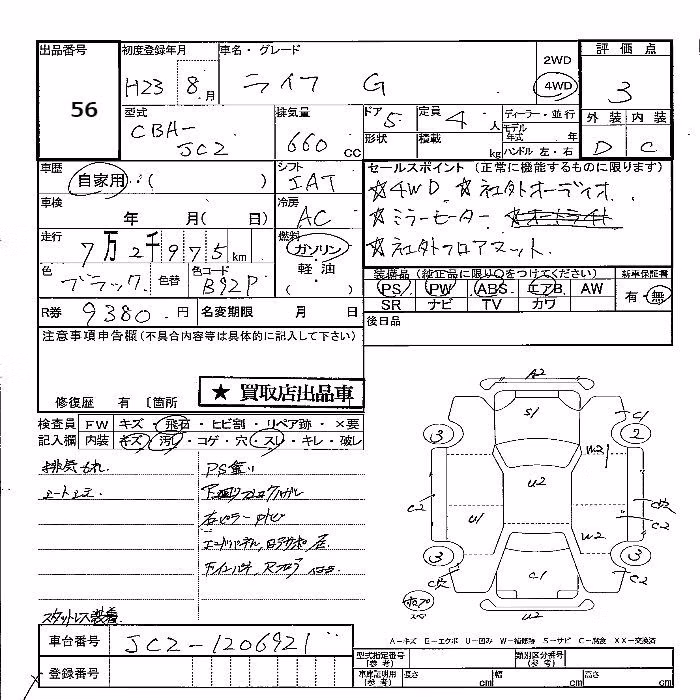 出品番号 初度登録年月 車名・グレード 2WD 評価点
56 H23 8月 ライフ G 4WD 3
型式 排気量 ドア 5 定員 4人 ディーラー・並行 外装 内装
CBA-JC2 660cc 形状 積載 kg モデル年式 年 D C
ハンドル 左・右
車歴 シフト セールスポイント (正常に機能するものに限ります)
自家用・( ) IAT ☆4WD ☆社外オーディオ
車検 年 月( 日) 冷房 AC ☆ミラーモーター
走行 7万2千975km 燃料 ガソリン 軽油 ( ) ☆社外フロアマット
色 ブラック 色替 色コード B92P
装備品 (純正品に限り○をつけてください) 新車保証書
PS PW ABS エアB AW 有・無
SR ナビ TV カワ
R券 9380円 名変期限 月 日 後日品
注意事項申告欄(不具合内容等は具体的に記入して下さい)
修復歴 有 〔箇所
★ 買取店出品車
検査員 FW キズ・飛石・ヒビ割・リペア跡・×要
記入欄 内装 キズ・汚れ・コゲ・穴・スレ・キレ・破レ
排気もれ
スタットレス装着
A2
S1 C1
3 2
U2
C2 U1 W2 C2
3 3
C1 C2
U2
A-キズ E-エクボ U-凹み W-補修跡 S-サビ C-腐食 XX-交換済
車台番号 JC2-1206921
登録番号
型式指定番号(参考) 類別区分番号(参考)
車庫証明用(参考) 長さ cm 幅 cm 高さ cm